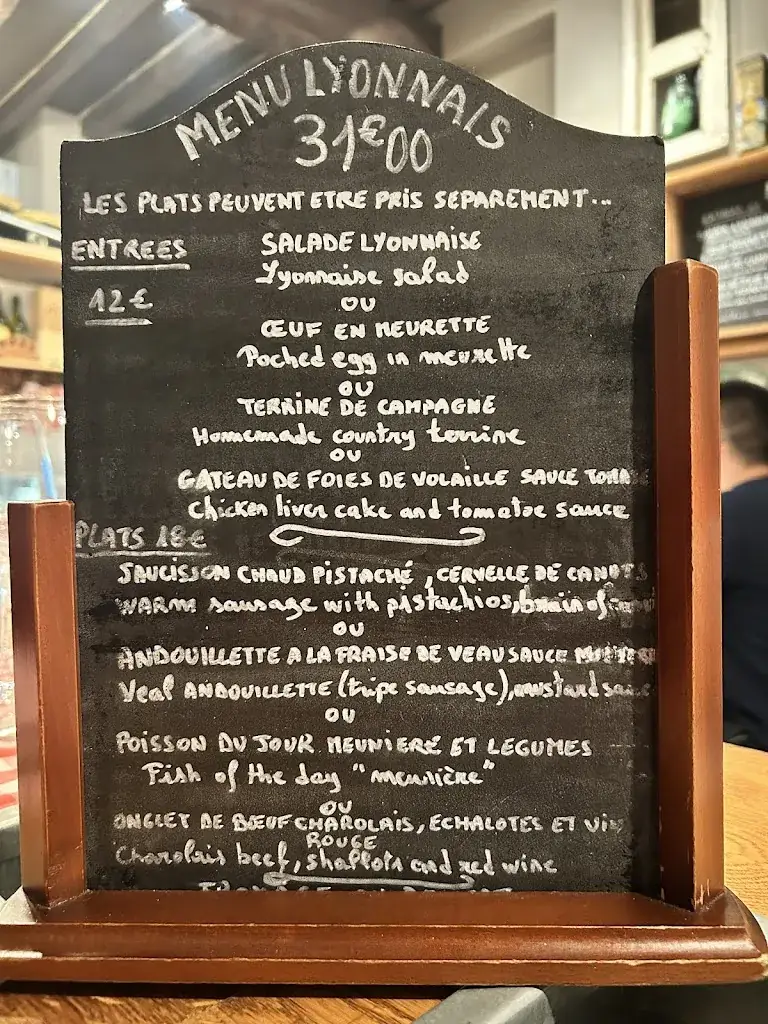 MENU LYONNAIS
31€00
LES PLATS PEUVENT ETRE PRIS SEPAREMENT...
ENTREES
12€
SALADE LYONNAISE
Lyonnaise salad
OU
ŒUF EN MEURETTE
Poched egg in meurette
OU
TERRINE DE CAMPAGNE
Homemade country terrine
OU
GATEAU DE FOIES DE VOLAILLE SAUCE
Chicken liver cake and tomatoe sauce
PLATS 18€
SAUCISSON CHAUD PISTACHÉ, CERVELLE DE CANUTS
WARM sausage with pistachios, brain of
OU
ANDOUILLETTE A LA FRAISE DE VEAU SAUCE
Veal ANDOUILLETTE (tripe sausage), mustard sauce
OU
POISSON DU JOUR MEUNIERE ET LEGUMES
Fish of the day "meunière"
OU
ONGLET DE BŒUF CHAROLAIS, ECHALOTES ET VIN
ROUGE
Charolais beef, shallots and red wine